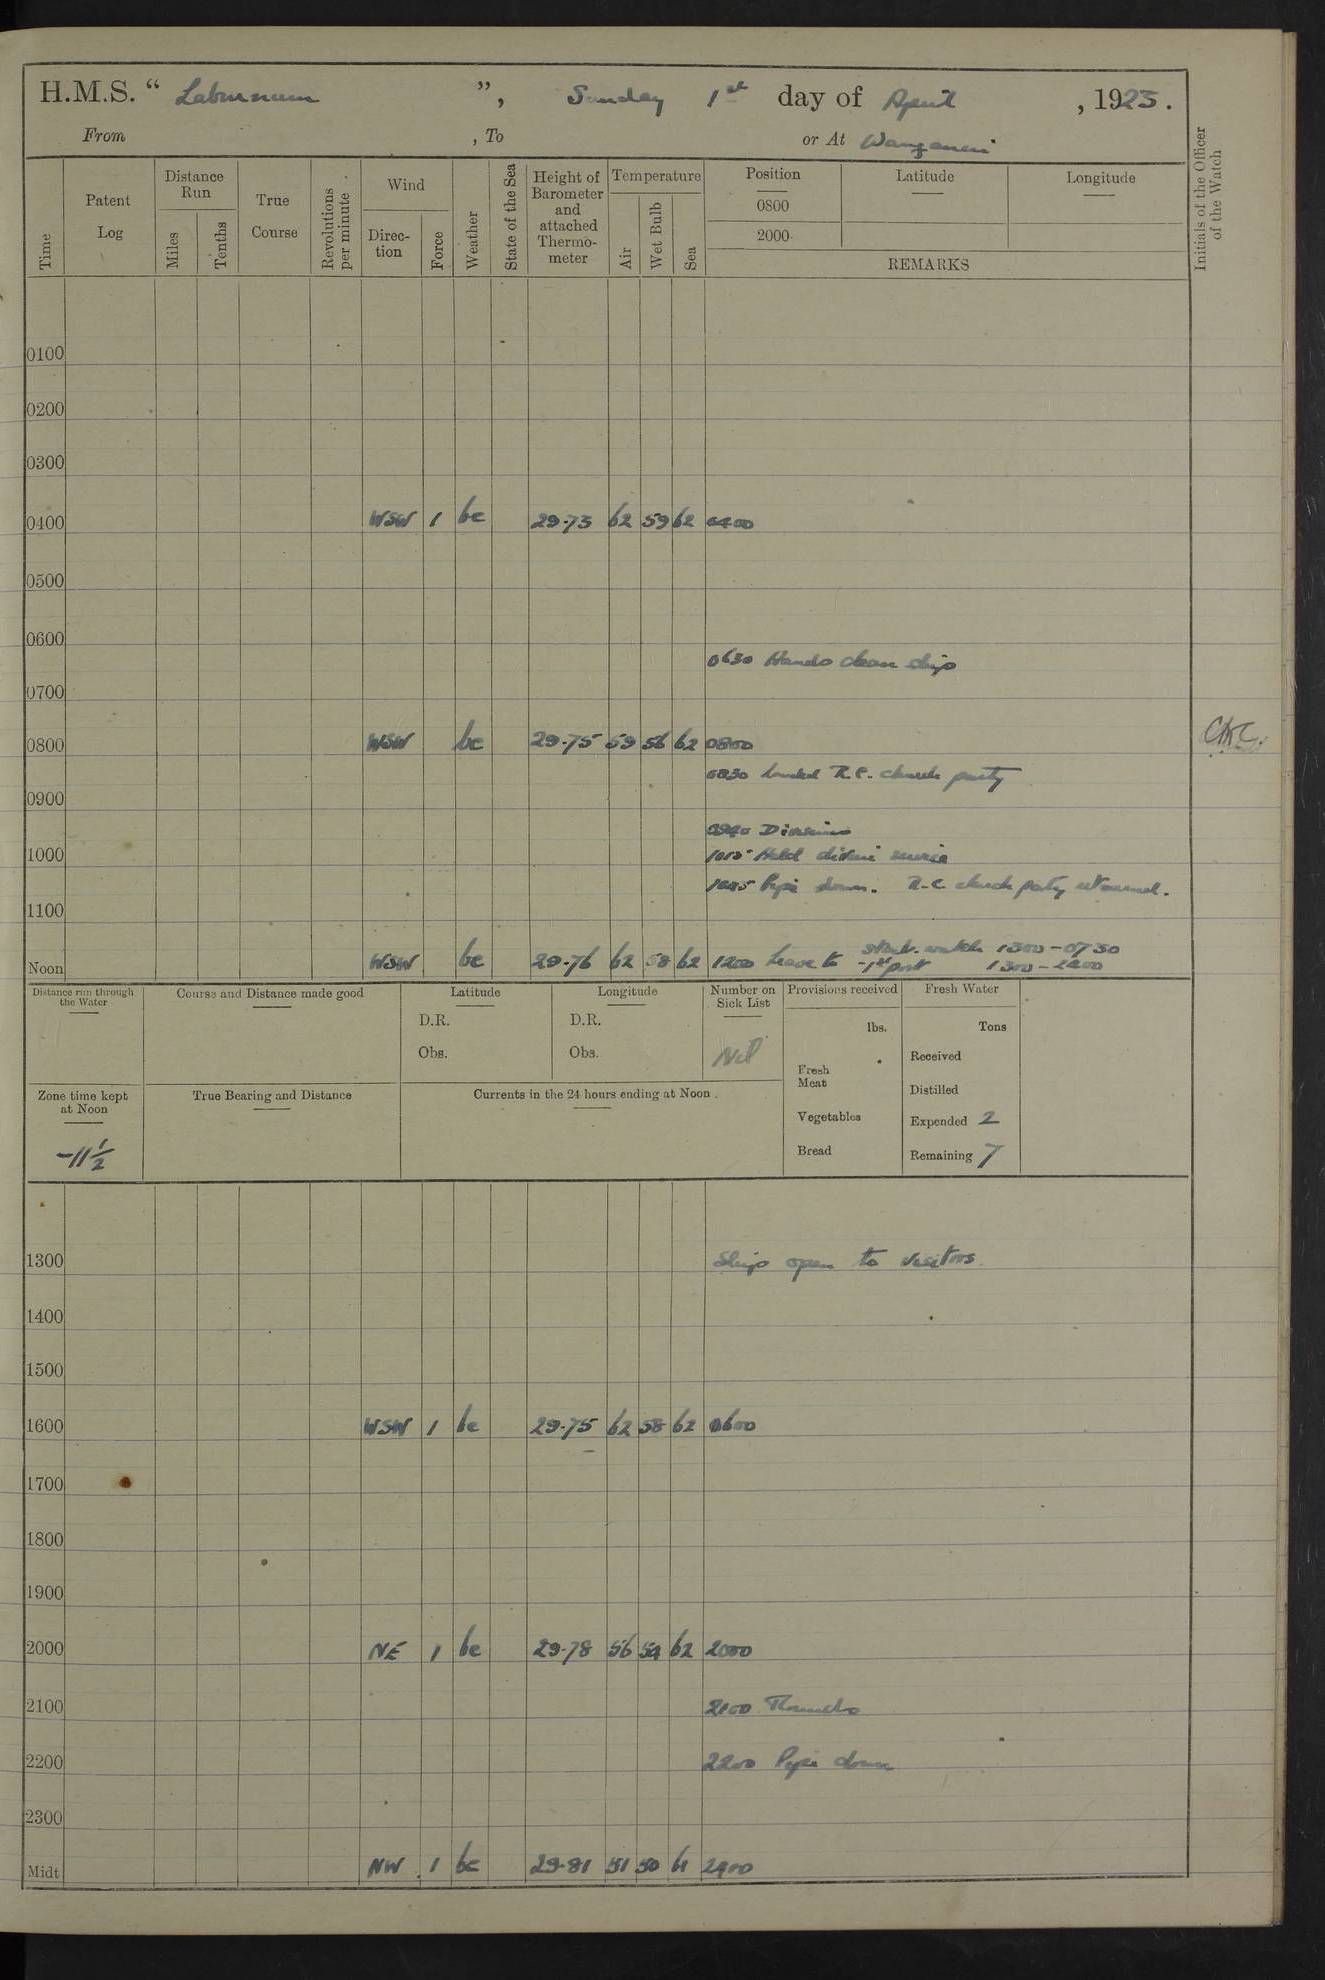 H.M.S. “ Laburnum ”, Sunday 1st day of April , 1923.
From , To or At Wanganui
Time
Patent Log
Distance Run
Miles
Tenths
True Course
Revolutions per minute
Wind
Direction
Force
Weather
State of the Sea
Height of Barometer and attached Thermometer
Temperature
Air
Wet Bulb
Sea
Position
0800
2000
Latitude
Longitude
REMARKS
Initials of the Officer of the Watch
0100
0200
0300
0400 WSW 1 bc 29·73 62 59 62 0400
0500
0600
0630 Hands clean ship
0700
0800 WSW bc 29·75 59 56 62 0800
0830 Landed R.C. church party
0900
0940 Divisions
1000 1015 Held divine service
1045 Pipe down. R.C. church party returned.
1100
Noon WSW bc 29·76 62 58 62 1200 Leave to watch 1300 - 0730
- 1st part 1300 - 2200
Distance run through the Water
Course and Distance made good
Latitude
D.R.
Obs.
Longitude
D.R.
Obs.
Number on Sick List
Nil
Provisions received
lbs.
Fresh Meat
Vegetables
Bread
Fresh Water
Tons
Received
Distilled
Expended 2
Remaining 7
Zone time kept at Noon
-11½
True Bearing and Distance
Currents in the 24 hours ending at Noon
1300 Ship open to visitors.
1400
1500
1600 WSW 1 bc 29·75 62 58 62 1600
1700
1800
1900
2000 NE 1 bc 29·78 56 54 62 2000
2100 2100 Rounds
2200 2200 Pipe down
2300
Midt NW 1 bc 29·81 51 50 61 2400